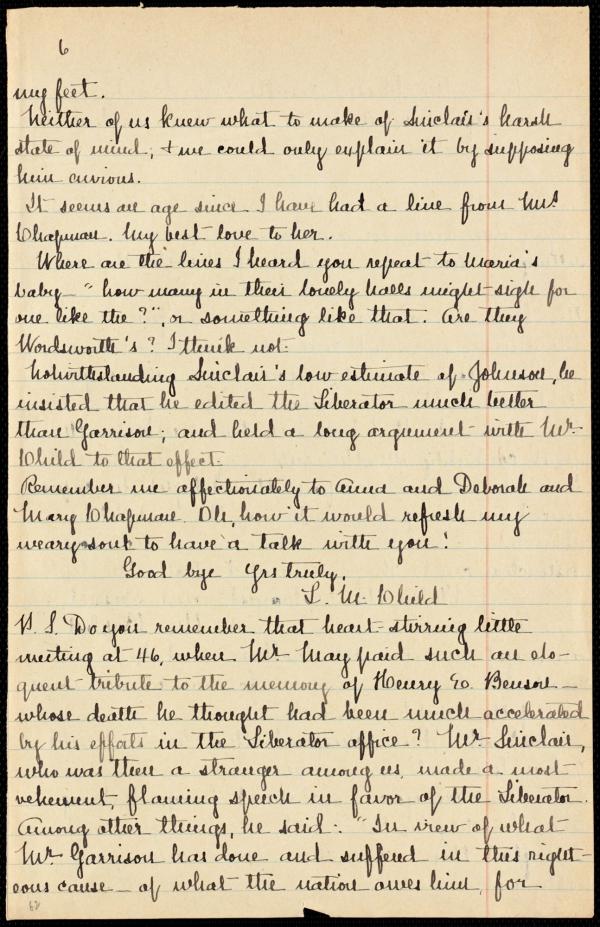 6
my feet.
Neither of us knew what to make of Sinclair's harsh
state of mind, & we could only explain it by supposing
him envious.
It seems an age since I have had a line from Mrs
Chapman. My best love to her.
Where are the lines I heard you repeat to Maria's
baby – "how many in their lonely halls might sigh for
one like the?", or something like that. Are they
Wordsworth's? I think not.
Nothwithstanding Sinclair's low estimate of Johnson, he
insisted that he edited the Liberator much better
than Garrison; and held a long argument with Mr.
Child to that effect.
Remember me affectionately to Anna and Deborah and
Mary Chapman. Oh, how it would refresh my
weary soul to have a talk with you!
Good bye Yrs truly,
L. M. Child
P. S. Do you remember that heart-stirring little
meeting at 46, when Mr May paid such an elo-
quent tribute to the memory of Henry E. Benson –
whose death he thought had been much accelerated
by his efforts in the Liberator office? Mr. Sinclair,
who was then a stranger among us, made a most
vehement, flaming speech in favor of the Liberator.
Among other things, he said: "In view of what
Mr. Garrison has done and suffered in this right-
eous cause – of what the nation owes him, for